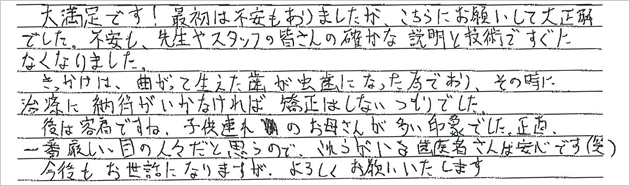 大満足です！最初は不安もありましたが、こちらにお願いして大正解
でした。不安も、先生やスタッフの皆さんの確かな説明と技術ですぐに
なくなりました。
きっかけは、曲がって生えた歯が虫歯になった為であり、その時に
治療に納得がいかなければ矯正はしないつもりでした。
後は客層ですね。子供連れのお母さんが多い印象でした。正直、
一番厳しい目の人々だと思うので、それらがいる歯医者さんは安心です(笑)
今後もお世話になりますが、よろしくお願いいたします